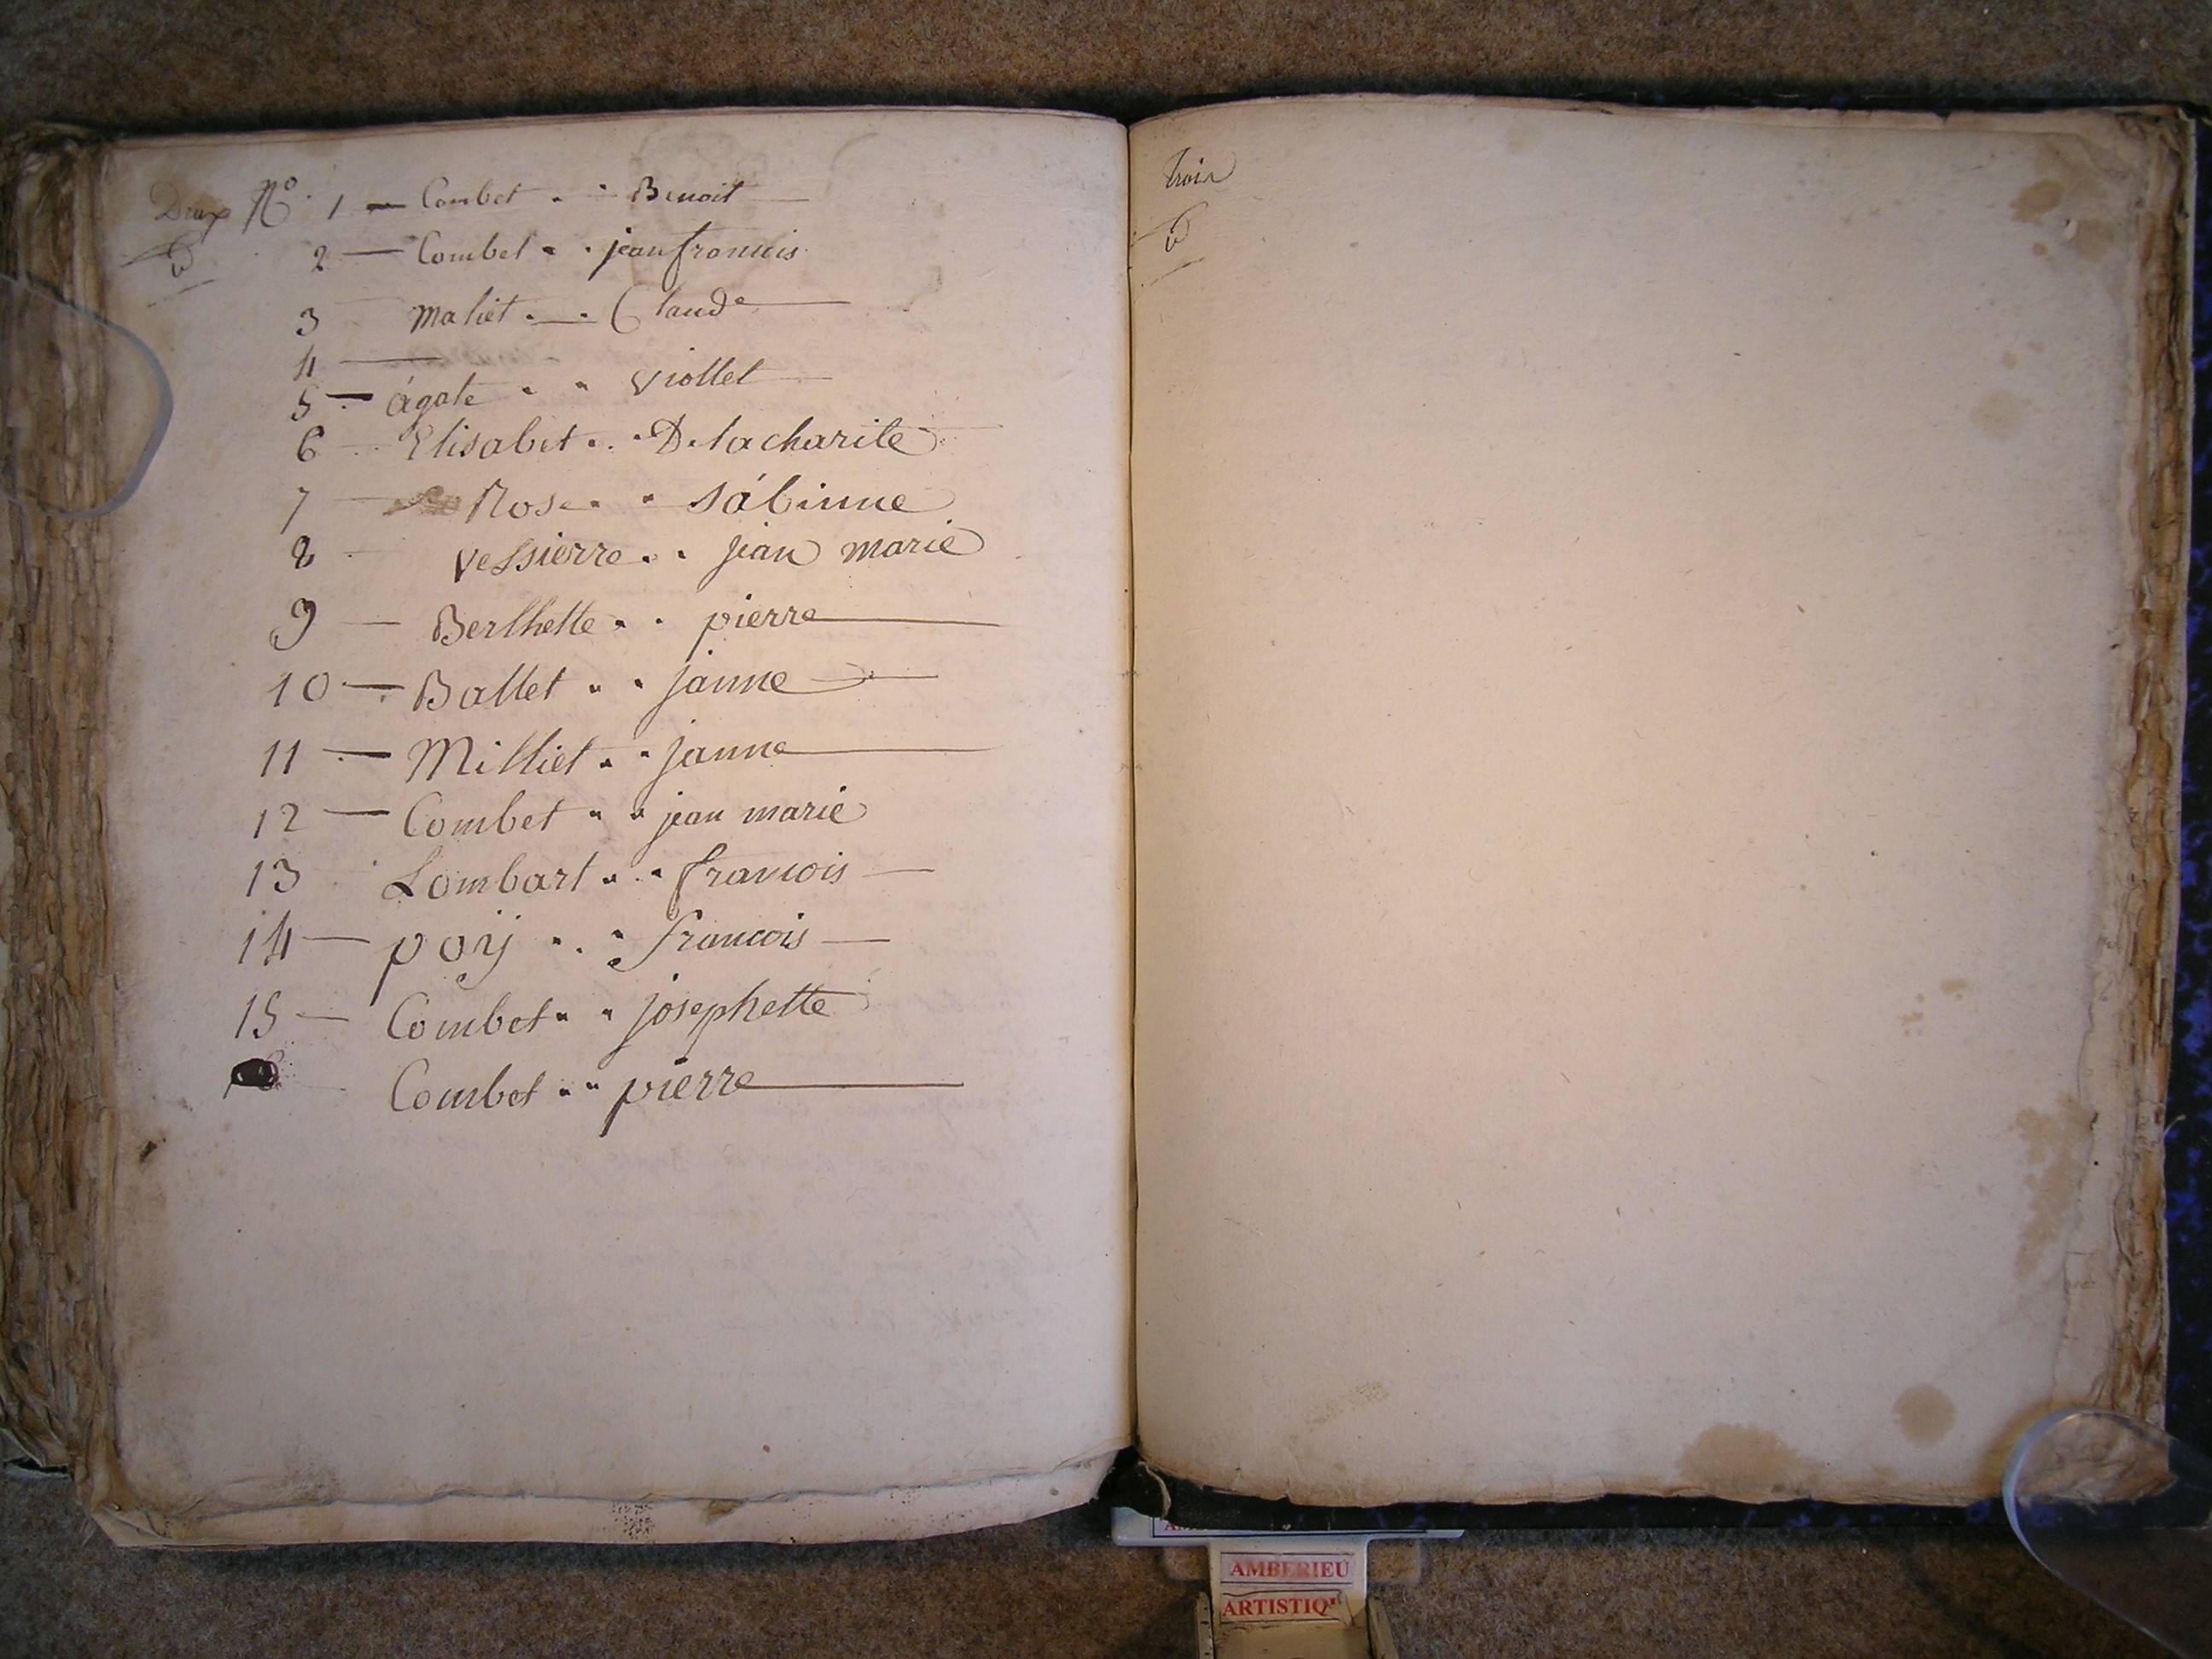 Deux N° 1 — Combet . . Benoit —
2 — Combet . . jean francois
3 Maliet . — . Claude —
4 —
5 — agate . . viollet —
6 — Elisabet . . Delacharite
7 — Rose . . sábinne
8 - vessierre . . jean marie
9 — Berlhette . . pierre —
10 — Ballet . . janne —
11 — Milliet . . janne —
12 — Combet . . jean marie
13 Lombart . . francois —
14 — poÿ . . francois —
15 — Combet . . josephette
Combet . . pierre —
trois
AMBERIEU
ARTISTIQ